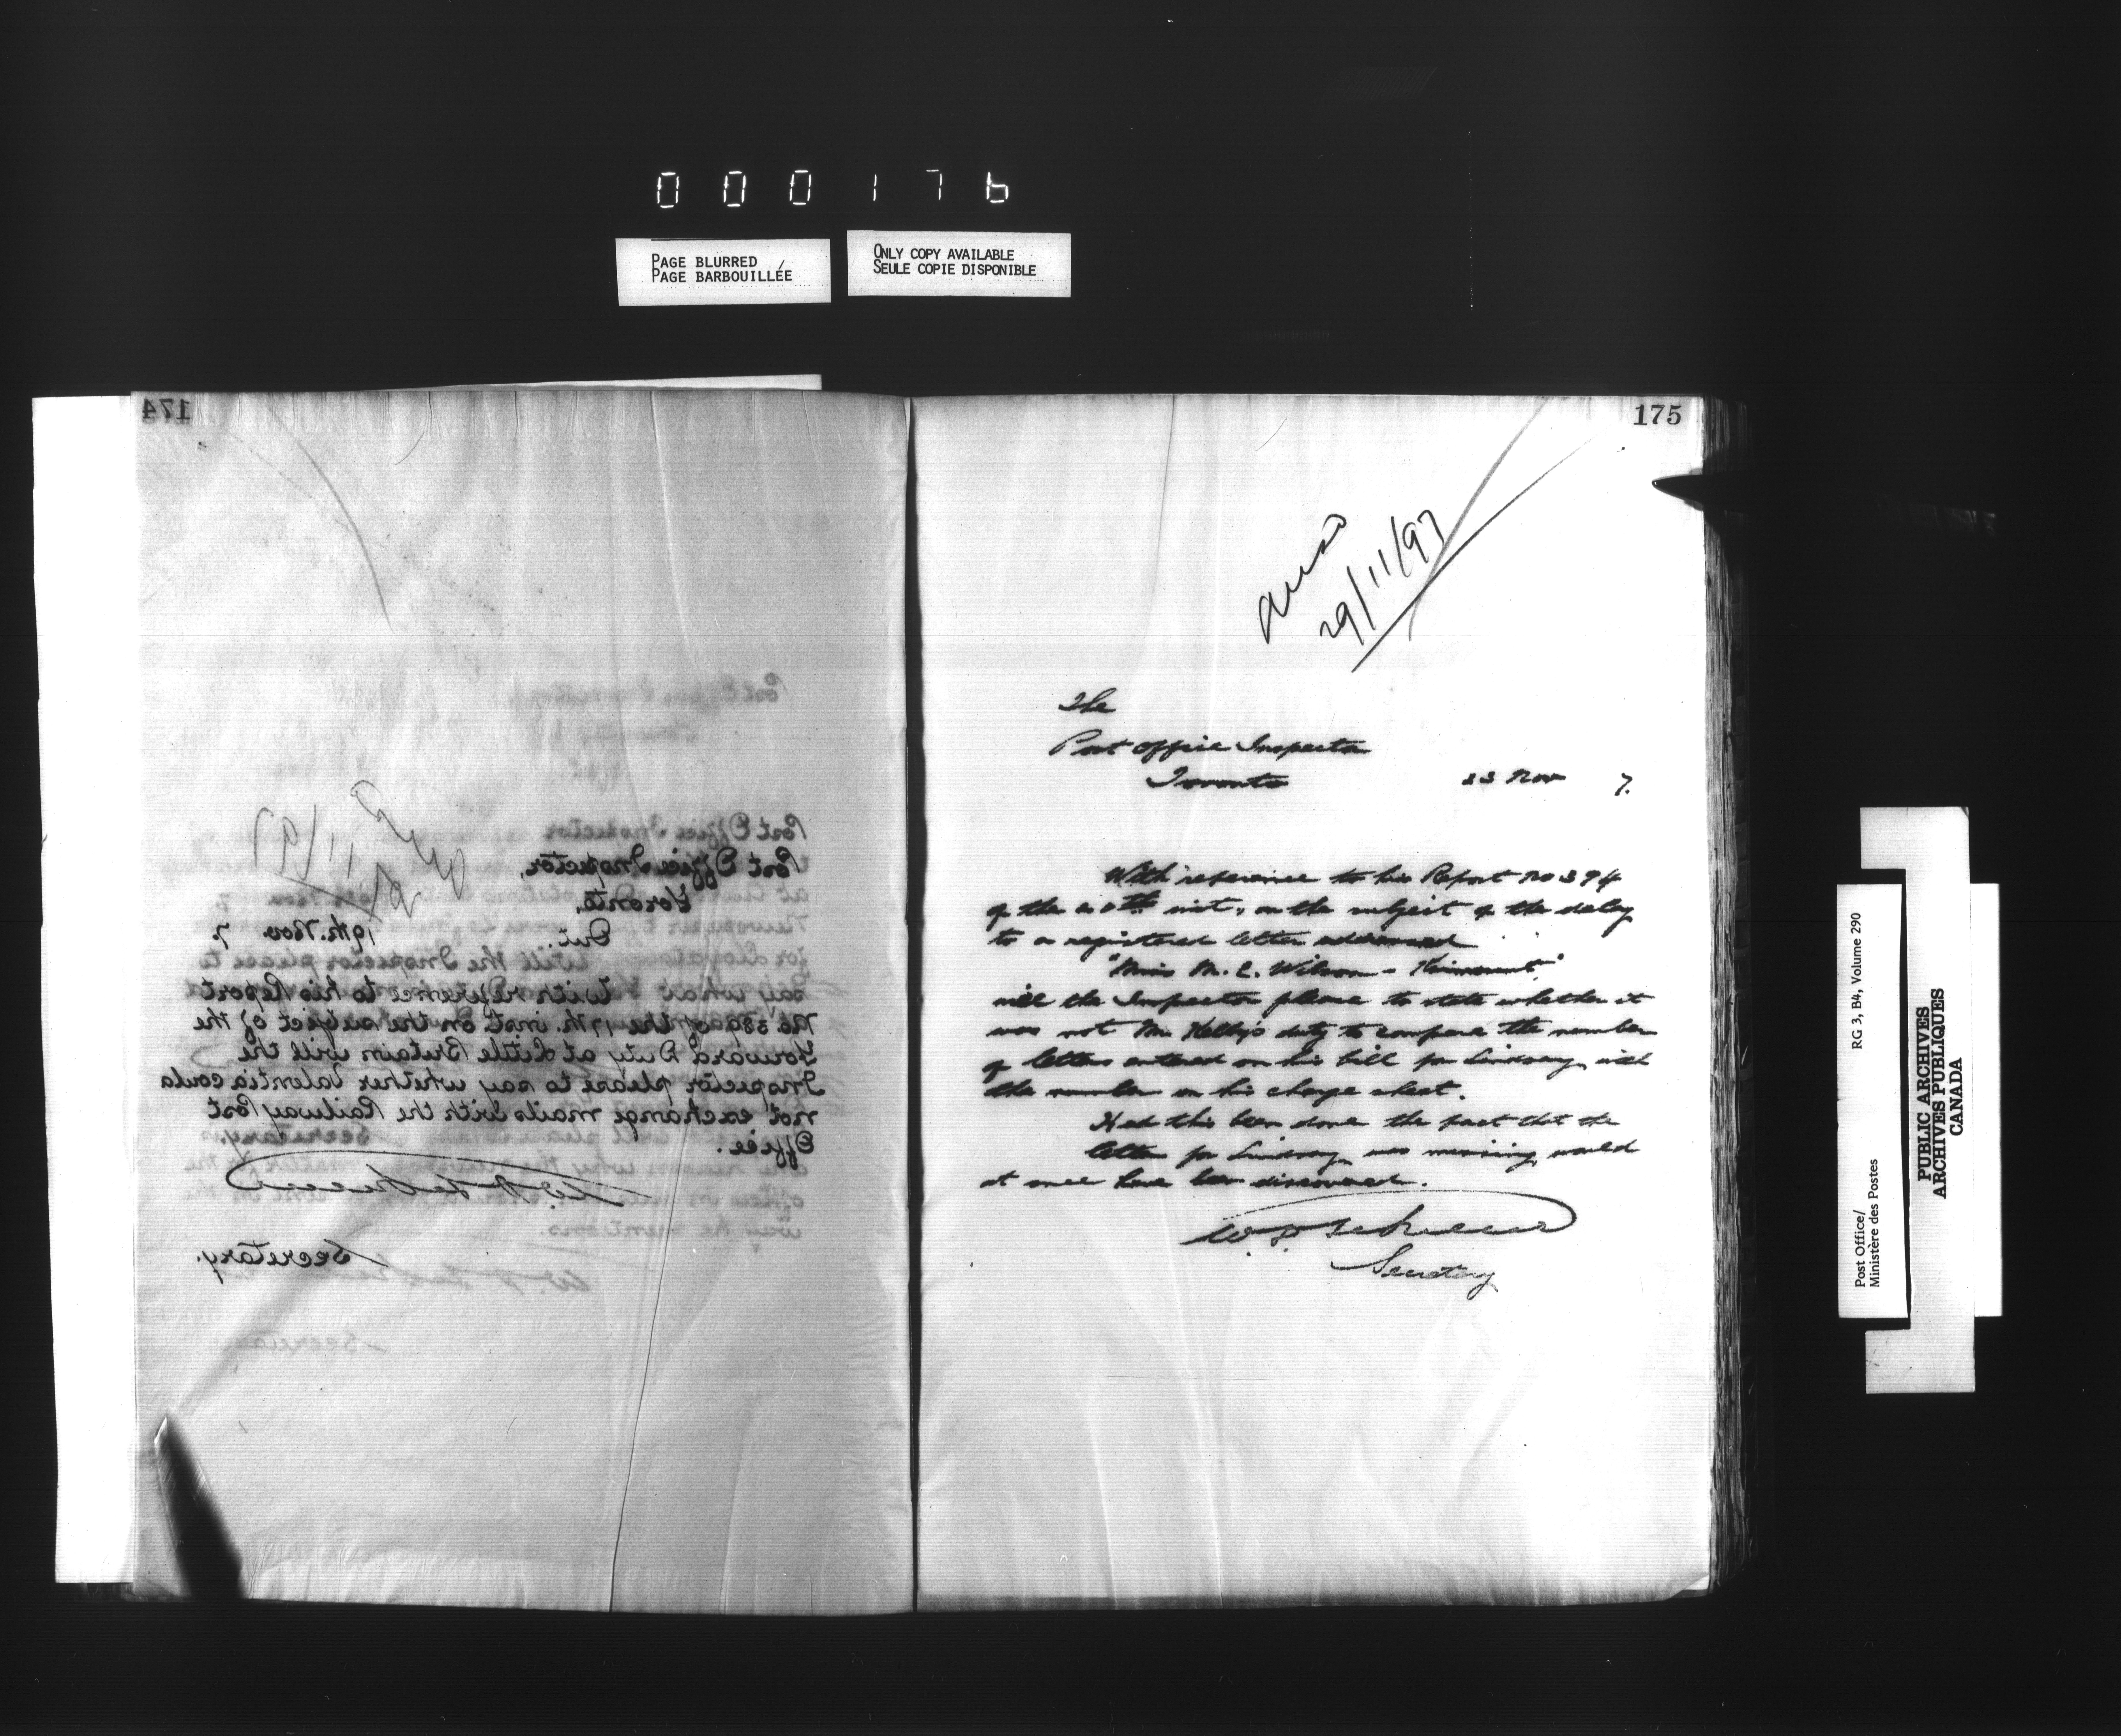 000176
PAGE BLURRED
PAGE BARBOUILLÉE
ONLY COPY AVAILABLE
SEULE COPIE DISPONIBLE
174
Post Office Inspector,
Toronto,
Ont.
19th. Nov. 7.
With reference to his Report
No. 389 of the 17th. inst. on the subject of the
Forward Duty at Little Britain will the
Inspector please to say whether Valentia could
not exchange mails with the Railway Post
Office.
Secretary.
175
Ansd
29/11/97
The
Post Office Inspector
Toronto
23 Nov 7.
With reference to his Report No 394
of the 20th inst, on the subject of the delay
to a registered letter addressed
"Miss M. E. Wilson - Kinmount"
will the Inspector please to state whether it
was not Mr Kelly's duty to compare the number
of letters entered on his bill for Lindsay with
the number on his charge sheet.
Had this been done the fact that the
letter for Lindsay was missing would
at once have been discovered.
Secretary
Post Office/
Ministère des Postes
RG 3, B4, Volume 290
PUBLIC ARCHIVES
ARCHIVES PUBLIQUES
CANADA